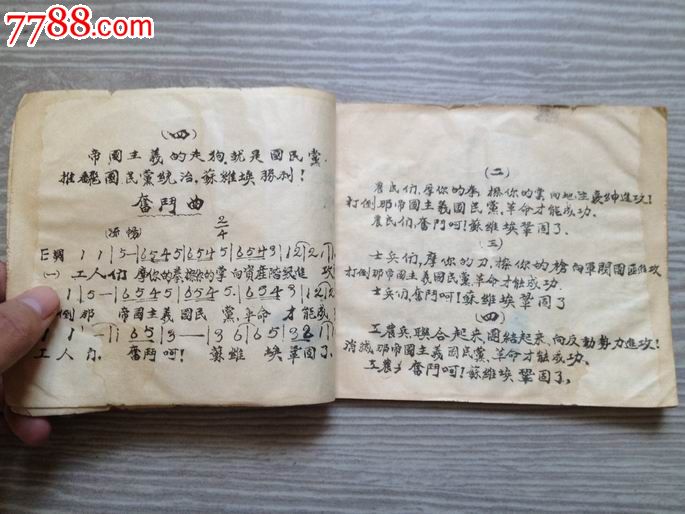 7788.com
（四）
帝國主義的走狗，就是國民黨，
推翻國民黨統治，蘇維埃勝利！
奮鬥曲
2/4
E調 1 1 | 5 — | 6 5 4 5 | 6 5 4 5 | 6 5 4 3 | 1 2 | 2 1
（一） 工人们 摩你的拳擦你的掌 向資産階級進 攻
1 | 5 — | 6 5 4 5 | 6 5 4 5 · 6 5 4 3 | 1 2 | 1 2
倒 那 帝國主義國民 黨，革命 才 能成
1 1 — | 1 6 5 | 3 — | 3 6 | 6 5 | 3 2 | 1
工人 们， 奮鬥呵！ 蘇維 埃 鞏固了
（二）
農民们，摩你的拳 擦你的掌 向地主豪紳進攻！
打倒那帝國主義國民黨，革命才能成功。
農民们，奮鬥呵！蘇維埃鞏固了。
（三）
士兵们，摩你的刀，擦你的槍 向軍閥團匪進攻
打倒那帝國主義國民黨，革命才能成功。
士兵们，奮鬥呵！蘇維埃鞏固了
（四）
工農兵聯合起来，團結起来，向反動勢力進攻！
消滅那帝國主義國民黨，革命才能成功。
工農 奮鬥呵！蘇維埃鞏固了。